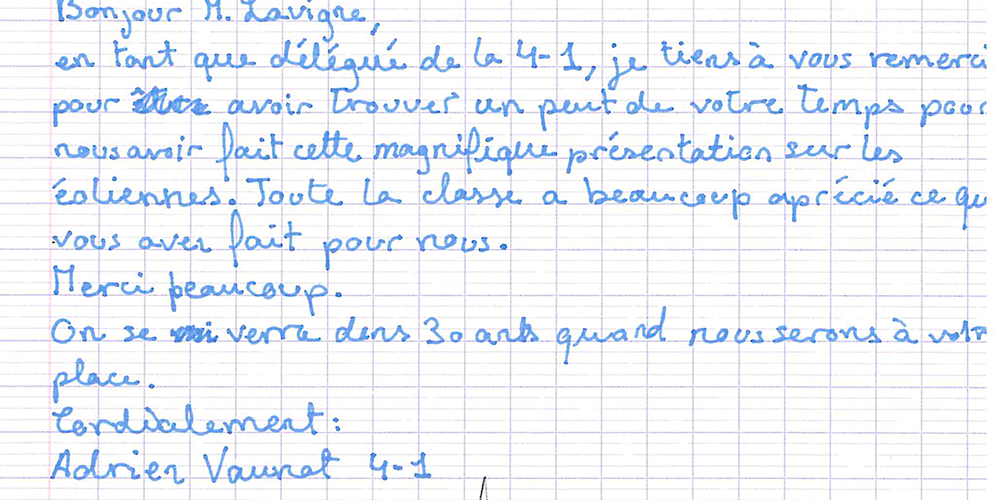 Bonjour M. Lavigne,
en tant que délégué de la 4-1, je tiens à vous remerci
pour avoir trouver un peut de votre temps pour
nous avoir fait cette magnifique présentation sur les
éoliennes. Toute la classe a beaucoup aprécié ce qu
vous avez fait pour nous.
Merci beaucoup.
On se verra dans 30 ans quand nous serons à votr
place.
Cordialement :
Adrien Vaunat 4-1